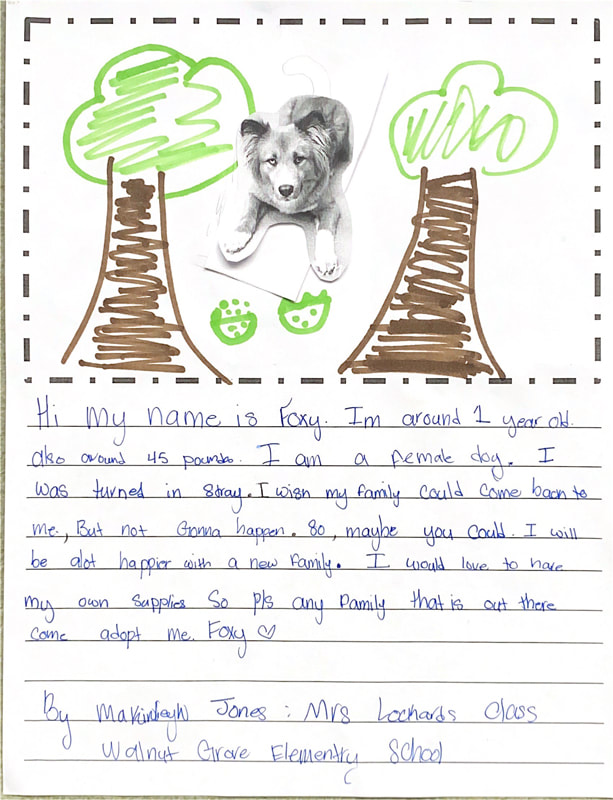 Hi My name is Foxy. Im around 1 year old.
also around 45 pounds. I am a female dog. I
was turned in stray. I wish my family could come back to
me, But not Gonna happen. So, maybe you could. I will
be alot happier with a new Family. I would love to have
my own supplies So pls any Family that is out there
come adopt me. Foxy ♡
By Jones : Mrs Lochards Class
Walnut Grove Elementry School